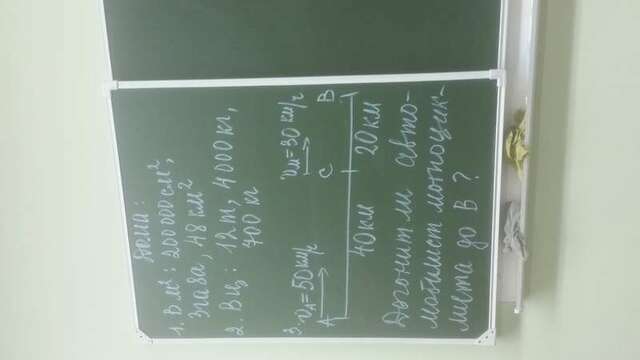 Дома:
1. В м²: 200000 см²,
3га8а, 48 км²
2. В ц: 12т, 4000кг,
700 кг
3. υA=50км/ч υм=30 км/ч
A C B
40км 20км
Догонит ли авто-
мобилист мотоцик-
листа до В?